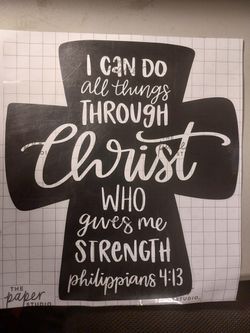 I CAN DO
all things
THROUGH
Christ
WHO
gives me
STRENGTH
philippians 4:13
THE
paper
STUDIO
STUDIO